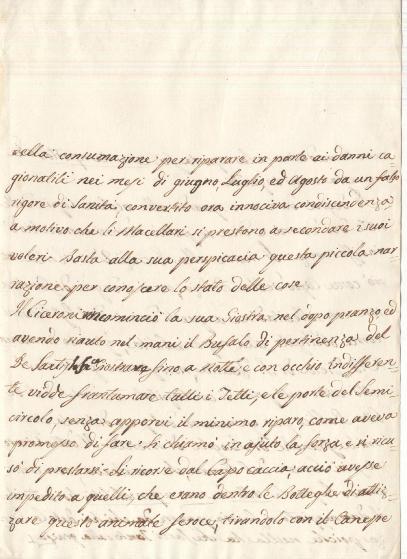 della consumazione per riparare in parte ai danni ca
gionatili nei mesi di giugno, Luglio, ed Agosto da un falso
rigore di Sanità, convertito ora innociva condiscendenza
a motivo che li Macellari si prestono a secondare i suoi
voleri Basta alla sua perspicacia questa piccola nar
razione per conoscere lo stato delle cose
Il Ciceroni rincominciò la sua Giostra nel dopo pranzo ed
avendo riauto nel mani il Bufalo di pertinenza del
De Santis fino a Notte, e con occhio Indifferen
te vidde frantumare tutti i Tetti, e le porte del Semi
circolo, senza apporvi il minimo riparo, come aveva
promesso di fare. Si chiamò in ajuto la forza, e si ricu
sò di prestarsi. Si ricorse dal Capocaccia, acciò avesse
impedito a quelli, che erano dentro le Botteghe di attiz
zare questo animale feroce, tirandolo con il Canepe